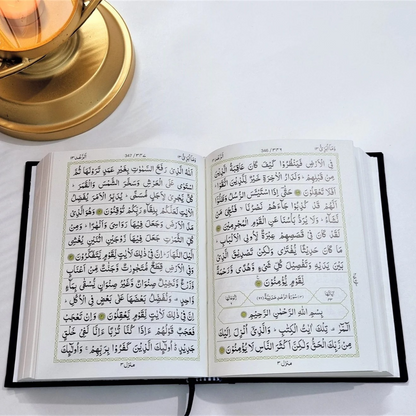 فِي الْاَرْضِ فَيَنْظُرُوْا كَيْفَ كَانَ عَاقِبَةُ الَّذِيْنَ
مِنْ قَبْلِهِمْ ؕ وَلَدَارُ الْاٰخِرَةِ خَيْرٌ لِّلَّذِيْنَ اتَّقَوْا ؕ
اَفَلَا تَعْقِلُوْنَ حَتّٰۤى اِذَا اسْتَيْـَٔسَ الرُّسُلُ وَظَنُّوْۤا
اَنَّهُمْ قَدْ كُذِبُوْا جَآءَهُمْ نَصْرُنَا ۙ فَنُجِّيَ مَنْ
نَّشَآءُ ؕ وَلَا يُرَدُّ بَاْسُنَا عَنِ الْقَوْمِ الْمُجْرِمِيْنَ
لَقَدْ كَانَ فِيْ قَصَصِهِمْ عِبْرَةٌ لِّاُولِي الْاَلْبَابِ ؕ
مَا كَانَ حَدِيْثًا يُّفْتَرٰى وَلٰكِنْ تَصْدِيْقَ الَّذِيْ
بَيْنَ يَدَيْهِ وَتَفْصِيْلَ كُلِّ شَيْءٍ وَّهُدًى وَّرَحْمَةً
لِّقَوْمٍ يُّؤْمِنُوْنَ
بِسْمِ اللّٰهِ الرَّحْمٰنِ الرَّحِيْمِ
الٓمّٓرٰ ۚ تِلْكَ اٰيٰتُ الْكِتٰبِ ؕ وَالَّذِيْۤ اُنْزِلَ اِلَيْكَ
مِنْ رَّبِّكَ الْحَقُّ وَلٰكِنَّ اَكْثَرَ النَّاسِ لَا يُؤْمِنُوْنَ
منزل ٣
اَللّٰهُ الَّذِيْ رَفَعَ السَّمٰوٰتِ بِغَيْرِ عَمَدٍ تَرَوْنَهَا ثُمَّ
اسْتَوٰى عَلَى الْعَرْشِ وَسَخَّرَ الشَّمْسَ وَالْقَمَرَ ؕ
كُلٌّ يَّجْرِيْ لِاَجَلٍ مُّسَمًّى ؕ يُدَبِّرُ الْاَمْرَ يُفَصِّلُ
الْاٰيٰتِ لَعَلَّكُمْ بِلِقَآءِ رَبِّكُمْ تُوْقِنُوْنَ وَهُوَ الَّذِيْ
مَدَّ الْاَرْضَ وَجَعَلَ فِيْهَا رَوَاسِيَ وَاَنْهٰرًا ؕ وَمِنْ
كُلِّ الثَّمَرٰتِ جَعَلَ فِيْهَا زَوْجَيْنِ اثْنَيْنِ يُغْشِي
الَّيْلَ النَّهَارَ ؕ اِنَّ فِيْ ذٰلِكَ لَاٰيٰتٍ لِّقَوْمٍ يَّتَفَكَّرُوْنَ
وَفِي الْاَرْضِ قِطَعٌ مُّتَجٰوِرٰتٌ وَّجَنّٰتٌ مِّنْ اَعْنَابٍ
وَّزَرْعٌ وَّنَخِيْلٌ صِنْوَانٌ وَّغَيْرُ صِنْوَانٍ يُّسْقٰى بِمَآءٍ
وَّاحِدٍ ۟ وَنُفَضِّلُ بَعْضَهَا عَلٰى بَعْضٍ فِي الْاُكُلِ ؕ
اِنَّ فِيْ ذٰلِكَ لَاٰيٰتٍ لِّقَوْمٍ يَّعْقِلُوْنَ وَاِنْ تَعْجَبْ
فَعَجَبٌ قَوْلُهُمْ ءَاِذَا كُنَّا تُرٰبًا ءَاِنَّا لَفِيْ خَلْقٍ
جَدِيْدٍ ؕ اُولٰٓئِكَ الَّذِيْنَ كَفَرُوْا بِرَبِّهِمْ ۚ وَاُولٰٓئِكَ
منزل ٣